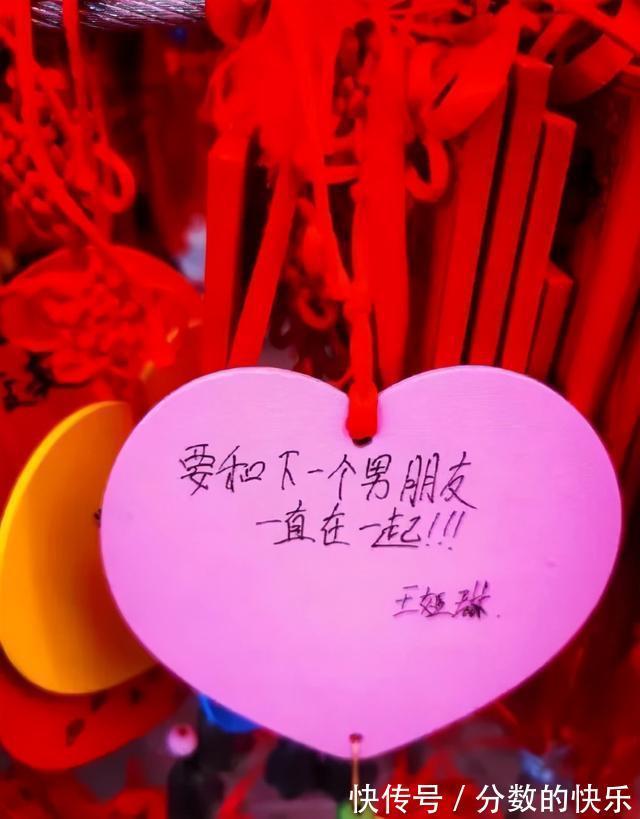 要和下一个男朋友
一直在一起!!!
快传号 / 分数的快乐